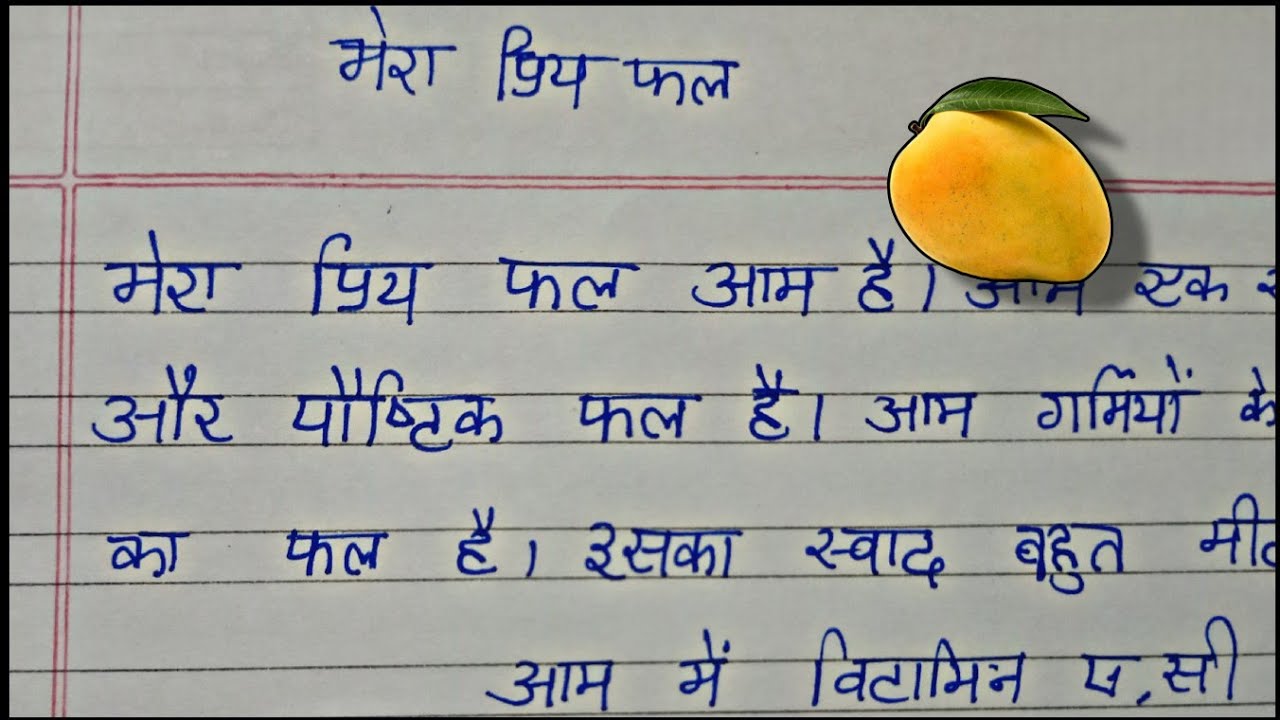 मेरा प्रिय फल
मेरा प्रिय फल आम है। आम एक
और पौष्टिक फल है। आम गर्मियों के
का फल है। इसका स्वाद बहुत
आम में विटामिन ए, सी